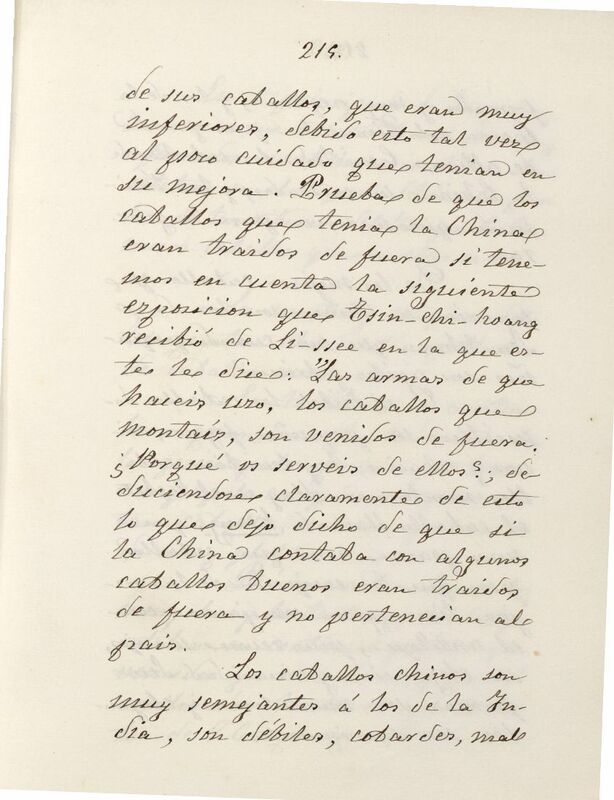 215.
de sus caballos, que eran muy
inferiores, debido esto tal vez
al poco cuidado que tenian en
su mejora. Prueba de que los
caballos que tenia la China
eran traidos de fuera si tene-
mos en cuenta la siguiente
exposicion que Tsin-chi-hoang
recibió de Li-ssee en la que es-
te le dice: "Las armas de que
haceis uzo, los caballos que
montais, son venidos de fuera.
¿Porqué os serveis de ellos?; de
duciendose claramente de esto
lo que dejo dicho de que si
la China contaba con algunos
caballos buenos eran traidos
de fuera y no pertenecian al
pais.
Los caballos chinos son
muy semejantes á los de la In-
dia, son débiles, cobardes, mal